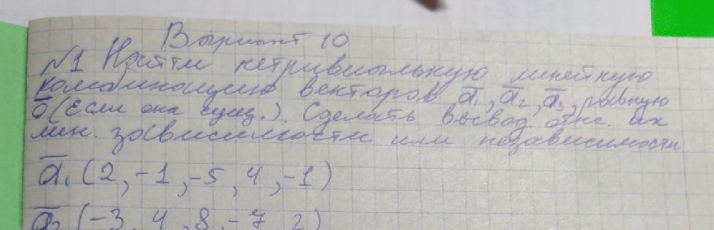 Вариант 10
№1 Найти нетривиальную линейную
комбинацию векторов a̅₁, a̅₂, a̅₃, равную
0̅ (Если она сущ.). Сделать вывод отн. их
лин. зависимости или независимости
a̅₁ (2, -1, -5, 4, -1)
a̅₂ (-3, 4, 8, -7, 2)